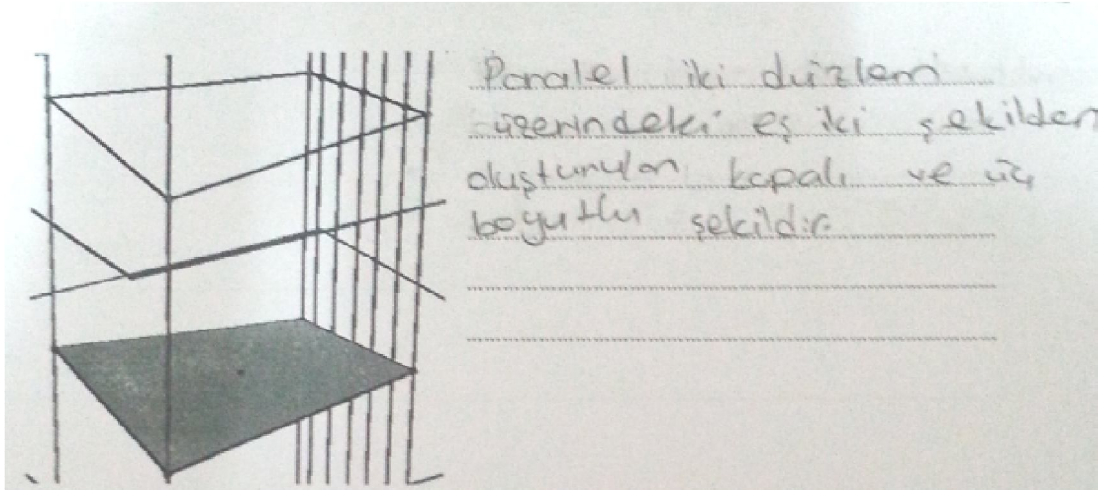 Paralel iki düzlem
üzerindeki eş iki şekilden
oluşturulan kapalı ve üç
boyutlu şekildir.